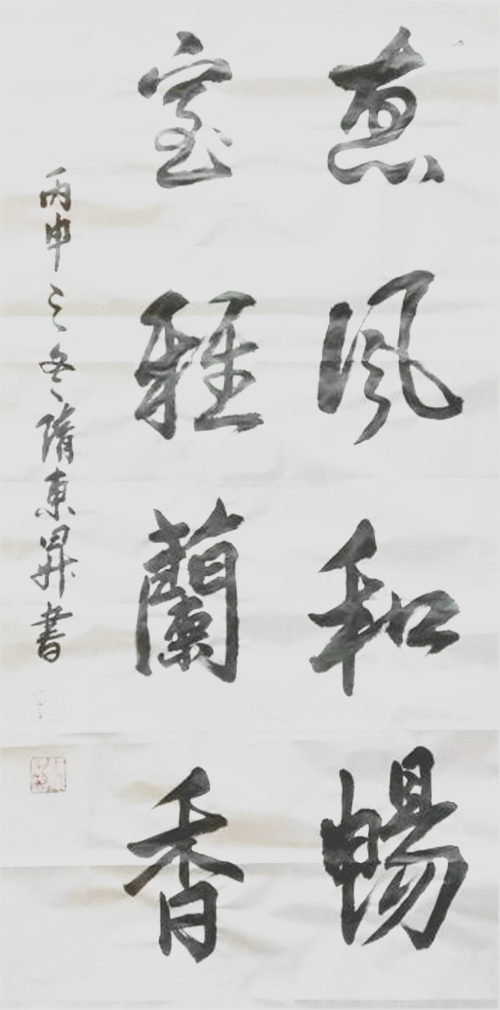 惠風和暢
室雅蘭香
丙申之冬隋東昇書